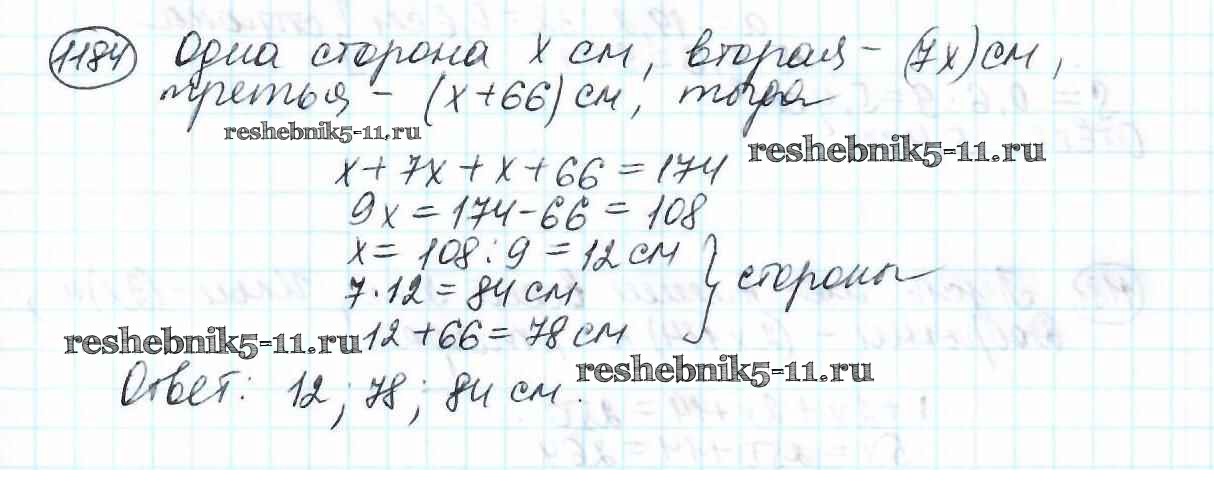 1184 Одна сторона x см, вторая – (7x) см,
третья – (x+66) см, тогда
reshebnik5-11.ru
reshebnik5-11.ru
x + 7x + x + 66 = 174
9x = 174 - 66 = 108
x = 108 : 9 = 12 см
7 · 12 = 84 см } стороны
12 + 66 = 78 см
reshebnik5-11.ru
reshebnik5-11.ru
Ответ: 12; 78; 84 см.